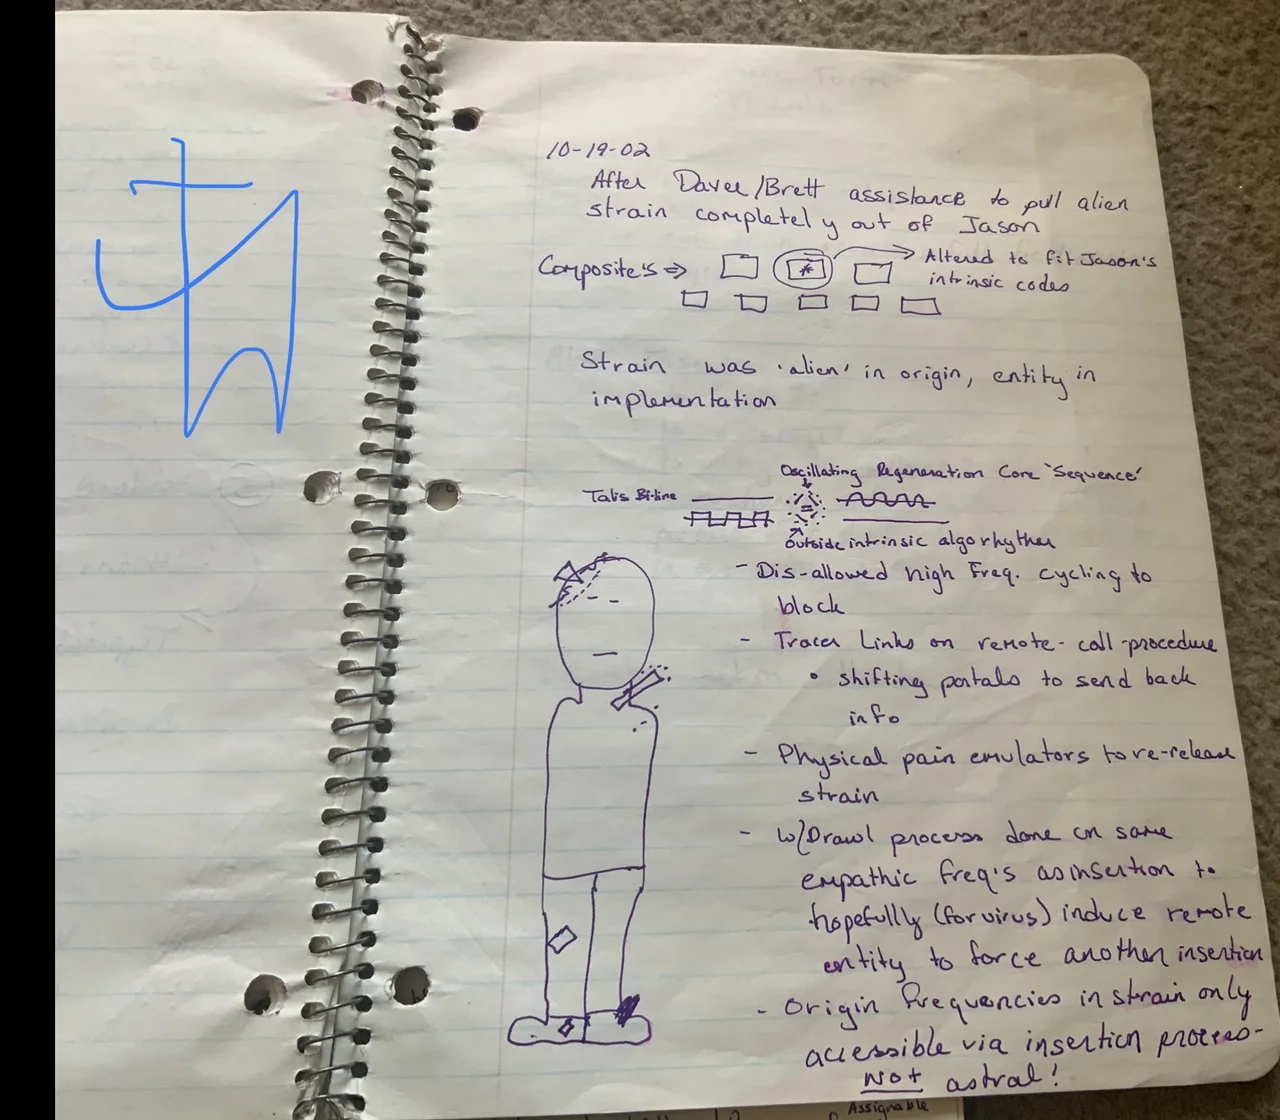 10-19-02
After Davee/Brett assistance to pull alien
strain completely out of Jason
Composite's ⇒
Altered to fit Jason's
intrinsic codes
Strain was 'alien' in origin, entity in
implementation
Oscillating Regeneration Core 'Sequence'
Talis Bi-line
outside intrinsic algorhythm
- Dis-allowed high Freq. cycling to
block
- Tracer Links on remote-call-procedure
• shifting portals to send back
info
- Physical pain emulators to re-release
strain
- W/Drawl process done on same
empathic freq's as insertion to
hopefully (for virus) induce remote
entity to force another insertion
- Origin frequencies in strain only
accessible via insertion process-
NOT astral!
Assignable